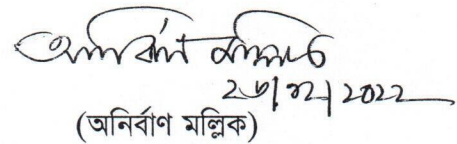 অনির্বাণ মল্লিক
২৬/১২/২০২২
(অনির্বাণ মল্লিক)